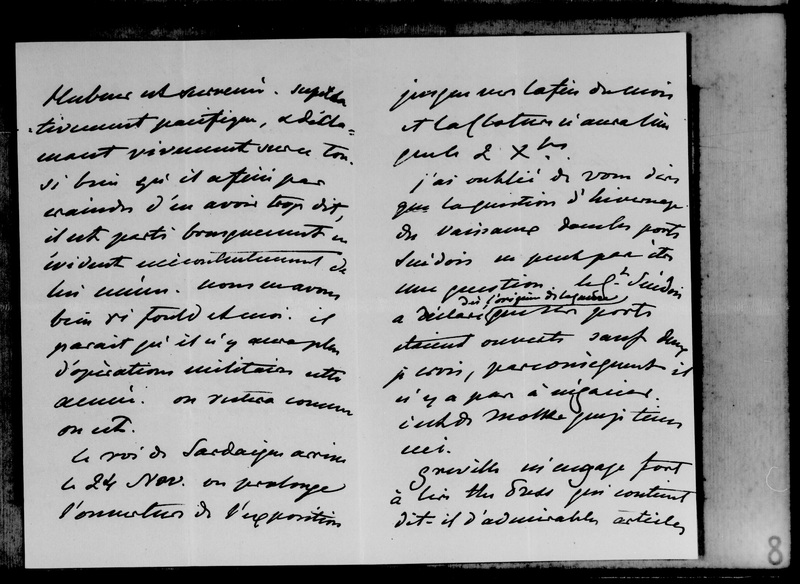 Hubner est survenu. superla-
tivement pacifique, & décla-
mant vivement sur ce ton.
si bien qu'il a fini par
craindre d'en avoir trop dit,
il est parti brusquement en
évident mécontentement de
lui même. nous en avons
bien ri Fould et moi. il
parait qu'il n'y aura plus
d'opérations militaires cette
année. on restera comme
on est.
Le roi de Sardaigne arrive
le 24 Nov. on prolonge
l'ouverture de l'exposition
jusques vers la fin du mois
et la clôture n'aura lieu
que le 2 Xbre.
j'ai oublié de vous dire
que la question d'hivernage
des vaisseaux dans les ports
Suédois ne peut pas être
une question. le Gt. Suédois
a déclaré dès l'origine de la guerre que ses ports
étaient ouverts sauf deux,
je crois, par conséquent il
n'y a pas à négocier.
c'est de Moltke que je tiens
ceci.
Greville m'engage fort
à lire the Press qui contient
dit-il d'admirables articles
8